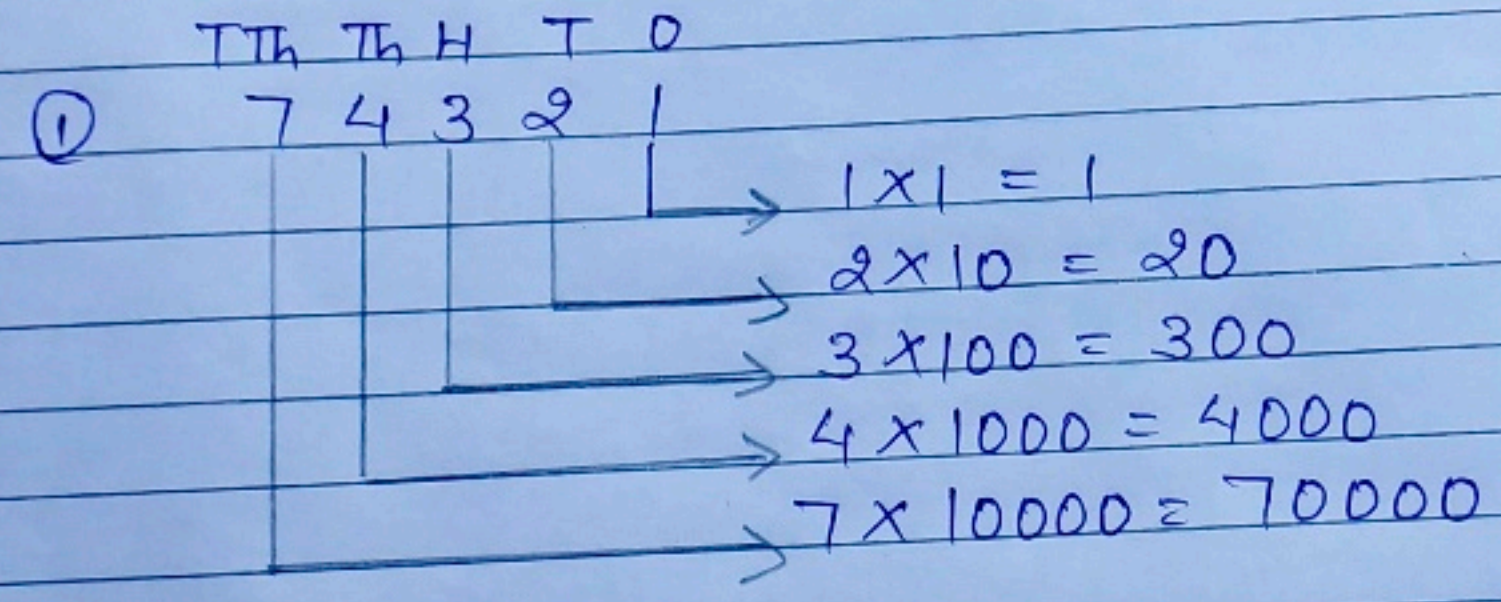 TTh Th H T O
① 7 4 3 2 1
1 × 1 = 1
2 × 10 = 20
3 × 100 = 300
4 × 1000 = 4000
7 × 10000 = 70000